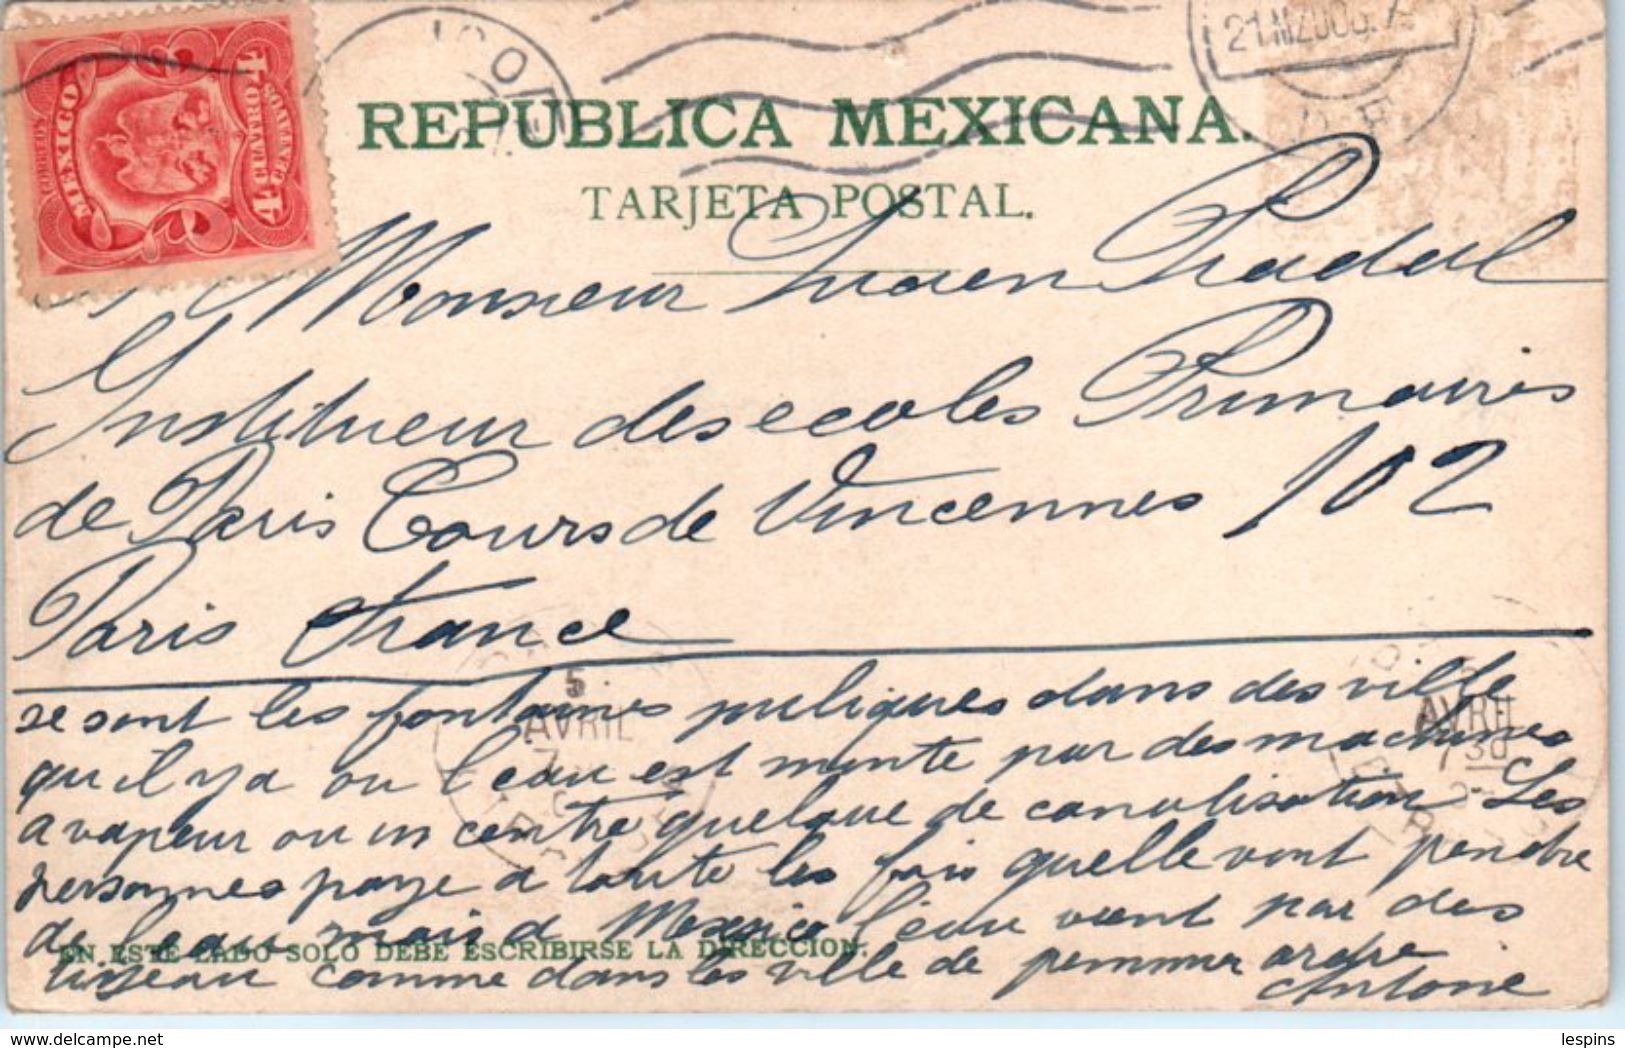 CORREOS
MEXICO
4
CUATRO CENTAVOS
21 MZO 06. 7
REPUBLICA MEXICANA.
TARJETA POSTAL.
Monsieur Lucien Pradel
Institueur des ecoles Primaires
de Paris Cours de Vincennes 102
Paris France
5
AVRIL
7
AVRIL
7 30
se sont les fontaines puliques dans des ville
qu il y a ou l'eau est monte par des machines
a vapeur ou un centre quelque de canalisation. Les
personnes paye a toute les fois quelle vont pendre
de l'eau mais a Mexico l'eau vient par des
tuyeau comme dans les ville de premier ordre
Antoine
EN ESTE LADO SOLO DEBE ESCRIBIRSE LA DIRECCION.
lespins